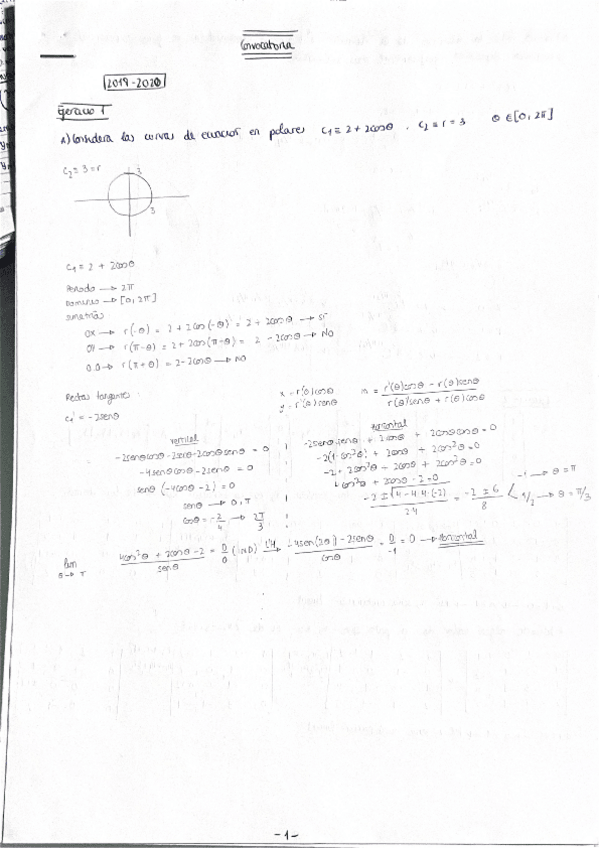 Convocatoria
2019-2020
Ejercicio 1
A) Considera las curvas de ecuación en polares C₁ ≡ 2 + 2cosθ , C₂ ≡ r = 3 θ ∈ [0, 2π]
C₂ ≡ 3 = r
3
3
C₁ = 2 + 2cosθ
Periodo → 2π
Dominio → [0, 2π]
simetrías
OX → r(-θ) = 2 + 2cos(-θ) = 2 + 2cosθ → SÍ
OY → r(π-θ) = 2 + 2cos(π-θ) = 2 - 2cosθ → NO
0.0 → r(π+θ) = 2 - 2cosθ → NO
Rectas tangentes:
C₁' = -2senθ
x = r(θ)cosθ
y = r(θ)senθ
m = r'(θ)cosθ - r(θ)senθ / r(θ)'senθ + r(θ)cosθ
vertical
-2senθcosθ - 2senθ - 2cosθsenθ = 0
-4senθcosθ - 2senθ = 0
senθ (-4cosθ - 2) = 0
senθ → 0, π
cosθ = -2/4 → 2π/3
horizontal
-2senθsenθ + 2cosθ + 2cosθcosθ = 0
-2(1-cos²θ) + 2cosθ + 2cos²θ = 0
-2 + 2cos²θ + 2cosθ + 2cos²θ = 0
4cos²θ + 2cosθ - 2 = 0
-2 ± √4 - 4·4·(-2) / 2·4 = -2 ± 6 / 8 -1 → θ = π
1/2 → θ = π/3
lim θ→π 4cos²θ + 2cosθ - 2 / senθ = 0/0 (IND) L'H → -4sen(2θ) - 2senθ / cosθ = 0/-1 = 0 → horizontal
-1-